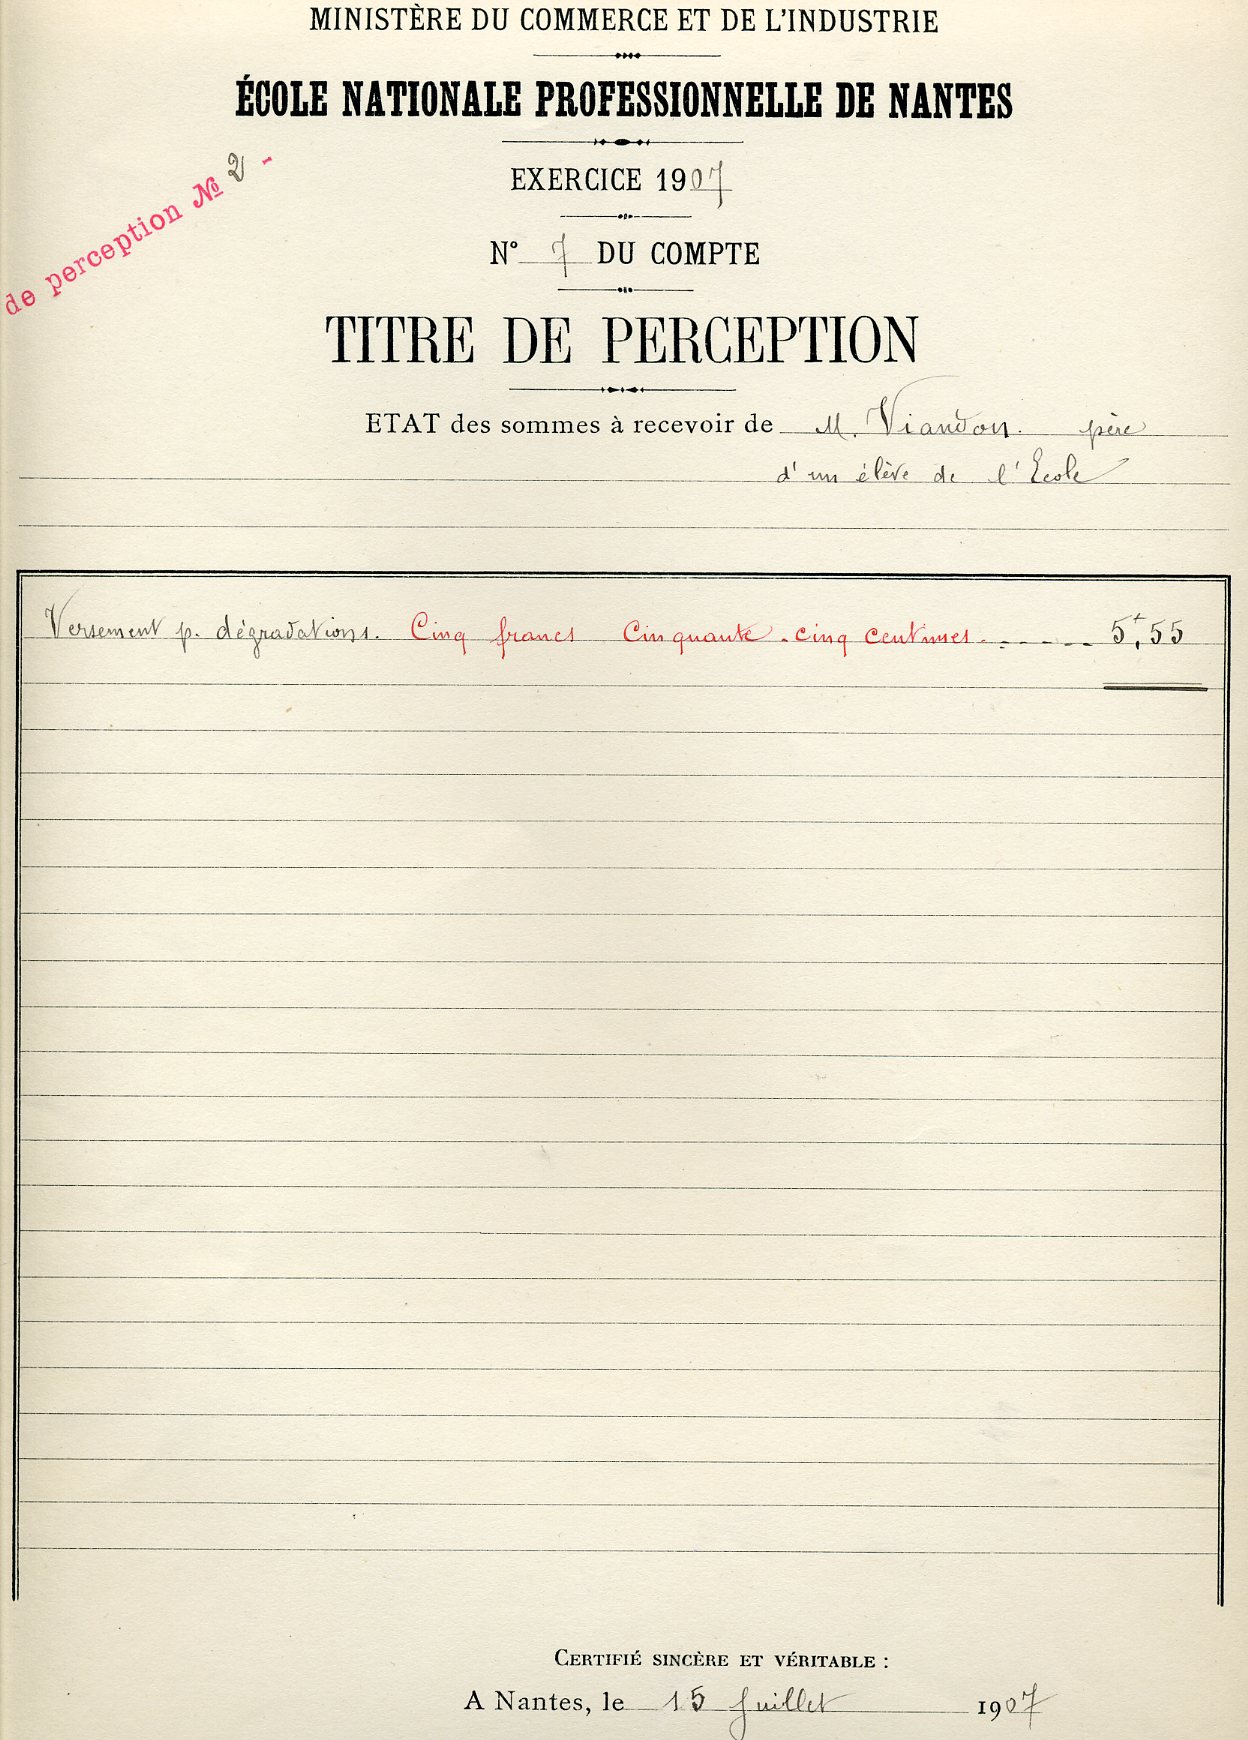 MINISTÈRE DU COMMERCE ET DE L'INDUSTRIE
ÉCOLE NATIONALE PROFESSIONNELLE DE NANTES
de perception № 2 -
EXERCICE 1907
N° 7 DU COMPTE
TITRE DE PERCEPTION
ETAT des sommes à recevoir de M. Viandon. père
d'un élève de l'Ecole
Versement p. dégradations. Cinq francs Cinquante-cinq centimes. 5f,55
CERTIFIÉ SINCÈRE ET VÉRITABLE :
A Nantes, le 15 Juillet 1907